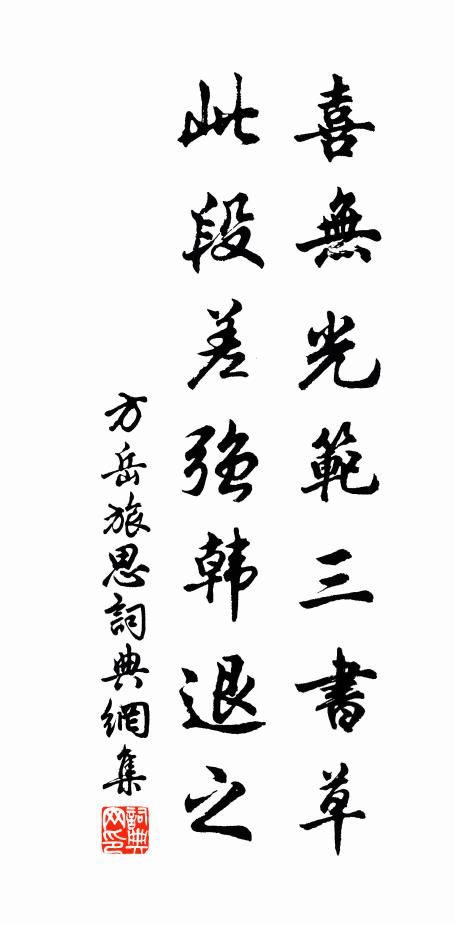 喜無光範三書草
此段差強韓退之
方岳旅思詞典網集
詞典網印